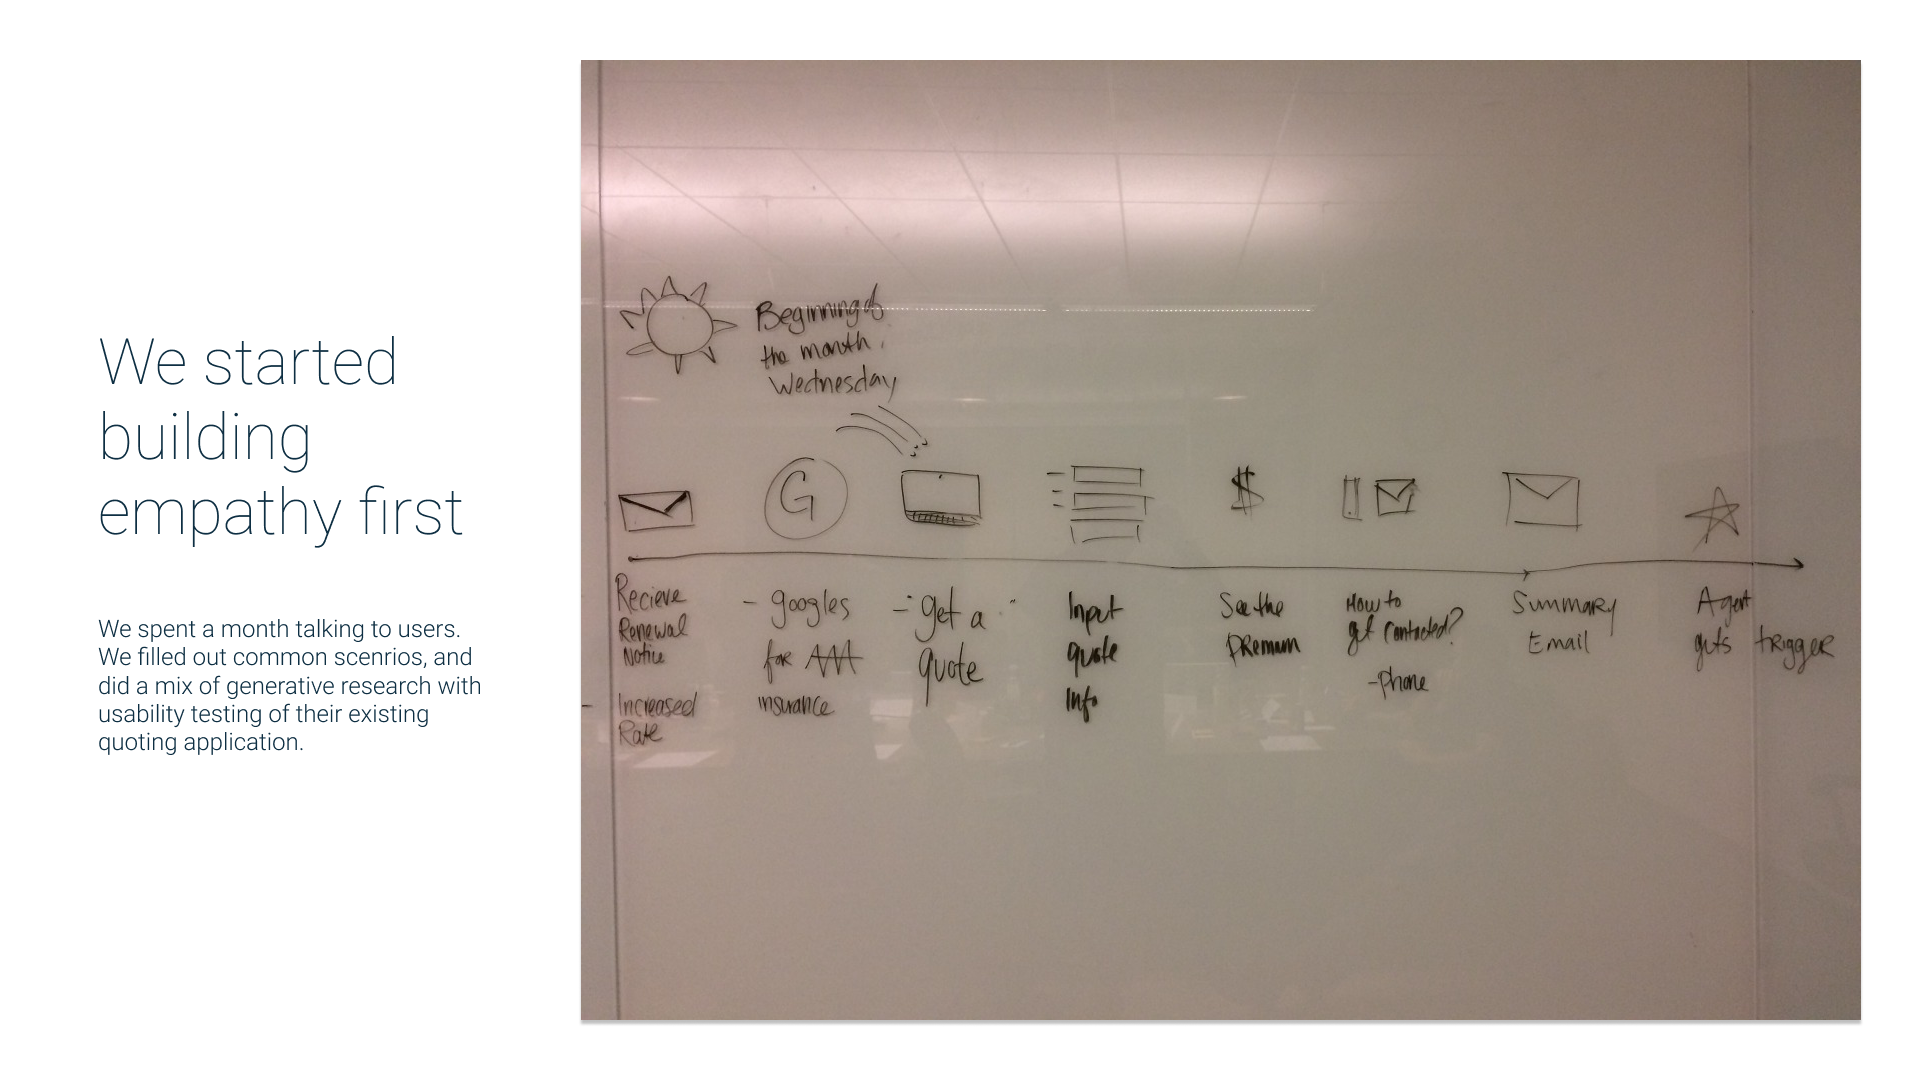 We started
building
empathy first
We spent a month talking to users.
We filled out common scenrios, and
did a mix of generative research with
usability testing of their existing
quoting application.
Beginning of
the month,
Wednesday
G
$
Recieve
Renewal
Notice
- Increased
Rate
- googles
for AAA
insurance
- "get a "
quote
Input
quote
Info
See the
PRemium
How to
get contacted?
- Phone
Summary
Email
Agent
gets trigger